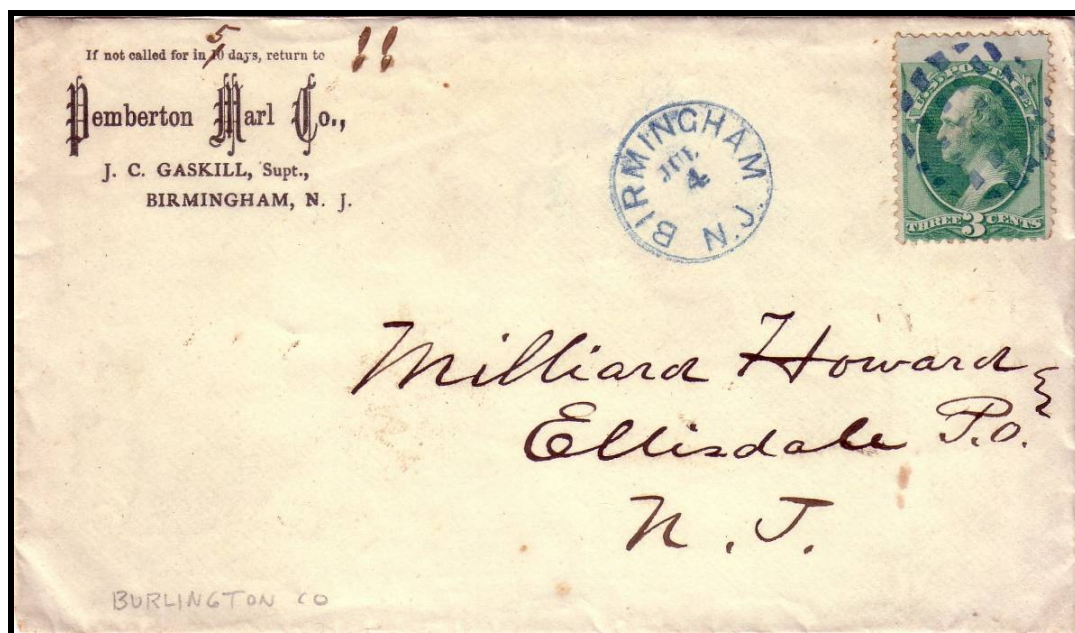 If not called for in 10 days, return to
5
Pemberton Marl Co.,
J. C. GASKILL, Supt.,
BIRMINGHAM, N. J.
BIRMINGHAM N.J.
JUL
4
U.S. POSTAGE
THREE 3 CENTS
Milliard Howard
Ellisdale P.O.
N. J.
BURLINGTON CO